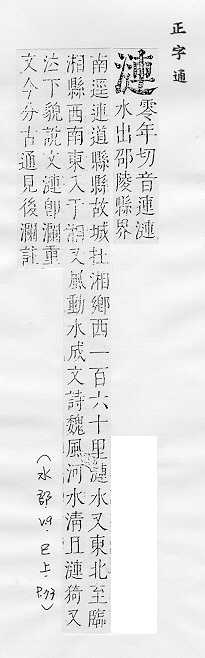 正字通
漣 零年切音連漣
水出邵陵縣界
南逕連道縣縣故城在湘鄉西一百六十里漣水又東北至臨
湘縣西南東入于湘又風動水成文詩魏風河水清且漣猗又
泣下貌說文漣卽瀾重
文今分古通見後瀾註
(水部 巳上 P.73)